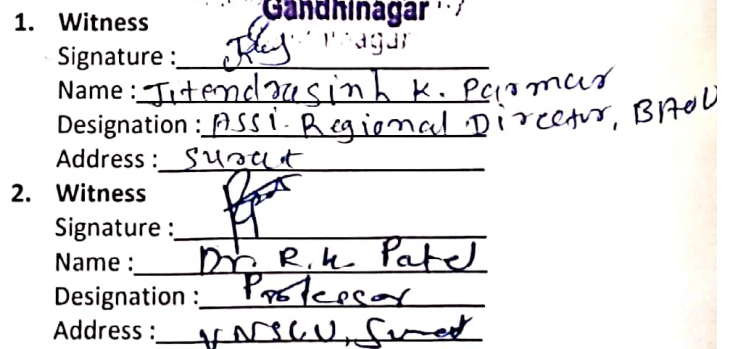 Gandhinagar
1. Witness
Signature :
Name : Jitendrasinh K. Parmar
Designation : Assi. Regional Director, BAOU
Address : Surat
2. Witness
Signature :
Name : Dr R. K. Patel
Designation : Professor
Address : VNSGU, Surat